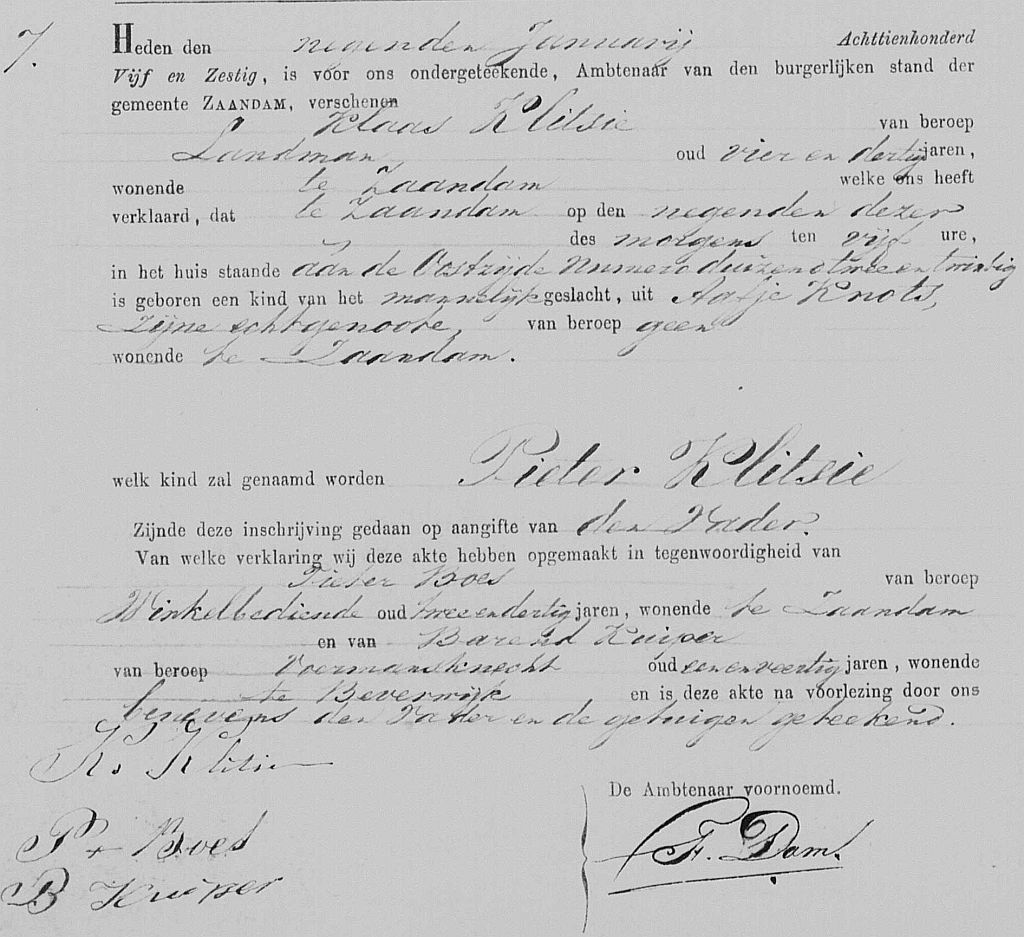 7.
Heden den negenden Januarij Achttienhonderd
Vijf en Zestig, is voor ons ondergeteekende, Ambtenaar van den burgerlijken stand der
gemeente ZAANDAM, verschenen
Klaas Klitsie van beroep
Landman, oud vier en dertig jaren,
wonende te Zaandam welke ons heeft
verklaard, dat te Zaandam op den negenden dezer
des morgens ten vijf ure,
in het huis staande aan de Oostzijde Numero duizend twee en twintig
is geboren een kind van het mannelijk geslacht, uit Aafje Knots,
zijne echtgenoote, van beroep geen
wonende te Zaandam.
welk kind zal genaamd worden Pieter Klitsie
Zijnde deze inschrijving gedaan op aangifte van den Vader.
Van welke verklaring wij deze akte hebben opgemaakt in tegenwoordigheid van
Pieter Boes van beroep
Winkelbediende oud twee en dertig jaren, wonende te Zaandam
en van Barend Kuiper
van beroep Voermansknecht oud een en veertig jaren, wonende
te Beverwijk en is deze akte na voorlezing door ons
benevens den Vader en de getuigen geteekend.
K. Klitsie
De Ambtenaar voornoemd.
P. Boes
F. Dam.
B Kuiper